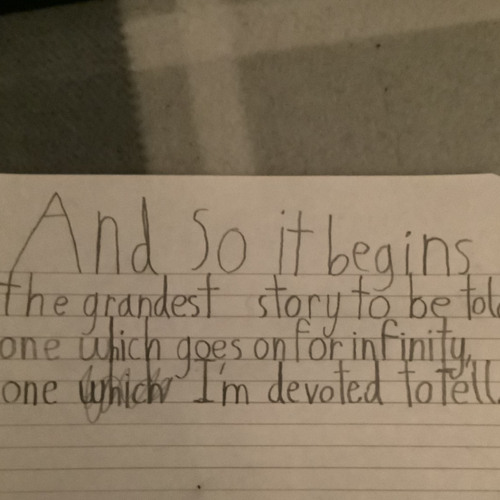 And So it begins
the grandest story to be told
one which goes on for infinity,
one which I'm devoted to tell.